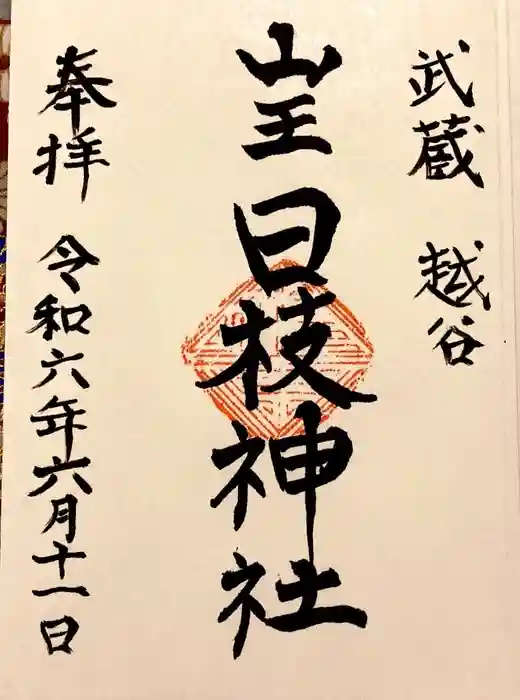 武蔵 越谷
山王 日枝神社
奉拝 令和六年六月十一日